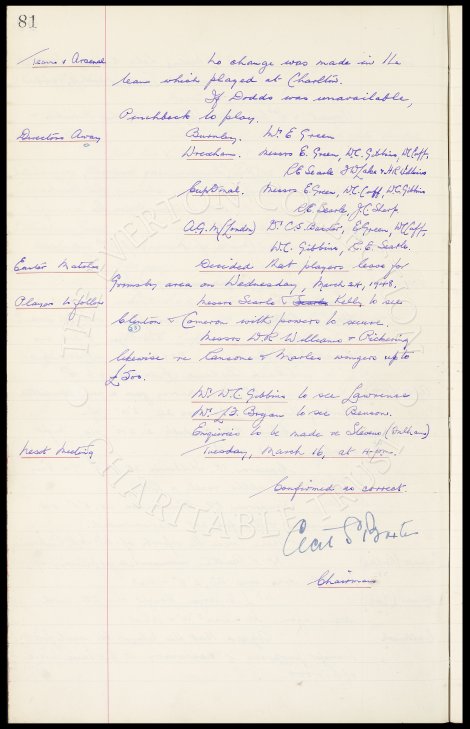 81
Team v Arsenal No change was made in the
team which played at Charlton.
If Dodds was unavailable,
Pinchbeck to play.
Directors Away Burnley. Mr E Green
Wrexham. Messrs E. Green, W.C. Gibbins, W.C. Cuff,
R.E. Searle
Cup Final. Messrs E Green, W.C. Cuff, W.C. Gibbins
R.E. Searle, J.C. Sharp.
A.G.M (London) Dr C.S. Baxter, E Green, W.C. Cuff,
W.C. Gibbins, R.E. Searle.
Easter Matches Decided that players leave for
area on Wednesday, March 24, 1948.
Players to follow Messrs Searle & Searle Kelly to see
Clinton & Cameron with powers to secure.
Messrs W.R. Williams & Pickering
likewise re & wingers up to
£500.
Mr W.C. Gibbins to see Lawrence
Mr to see Benson.
Enquiries to be made re Stevens
Next Meeting Tuesday, March 16, at 4 p.m.
Confirmed as correct.
Cecil S Baxter
Chairman
THE EVERTON CO
CHARITABLE TRUST